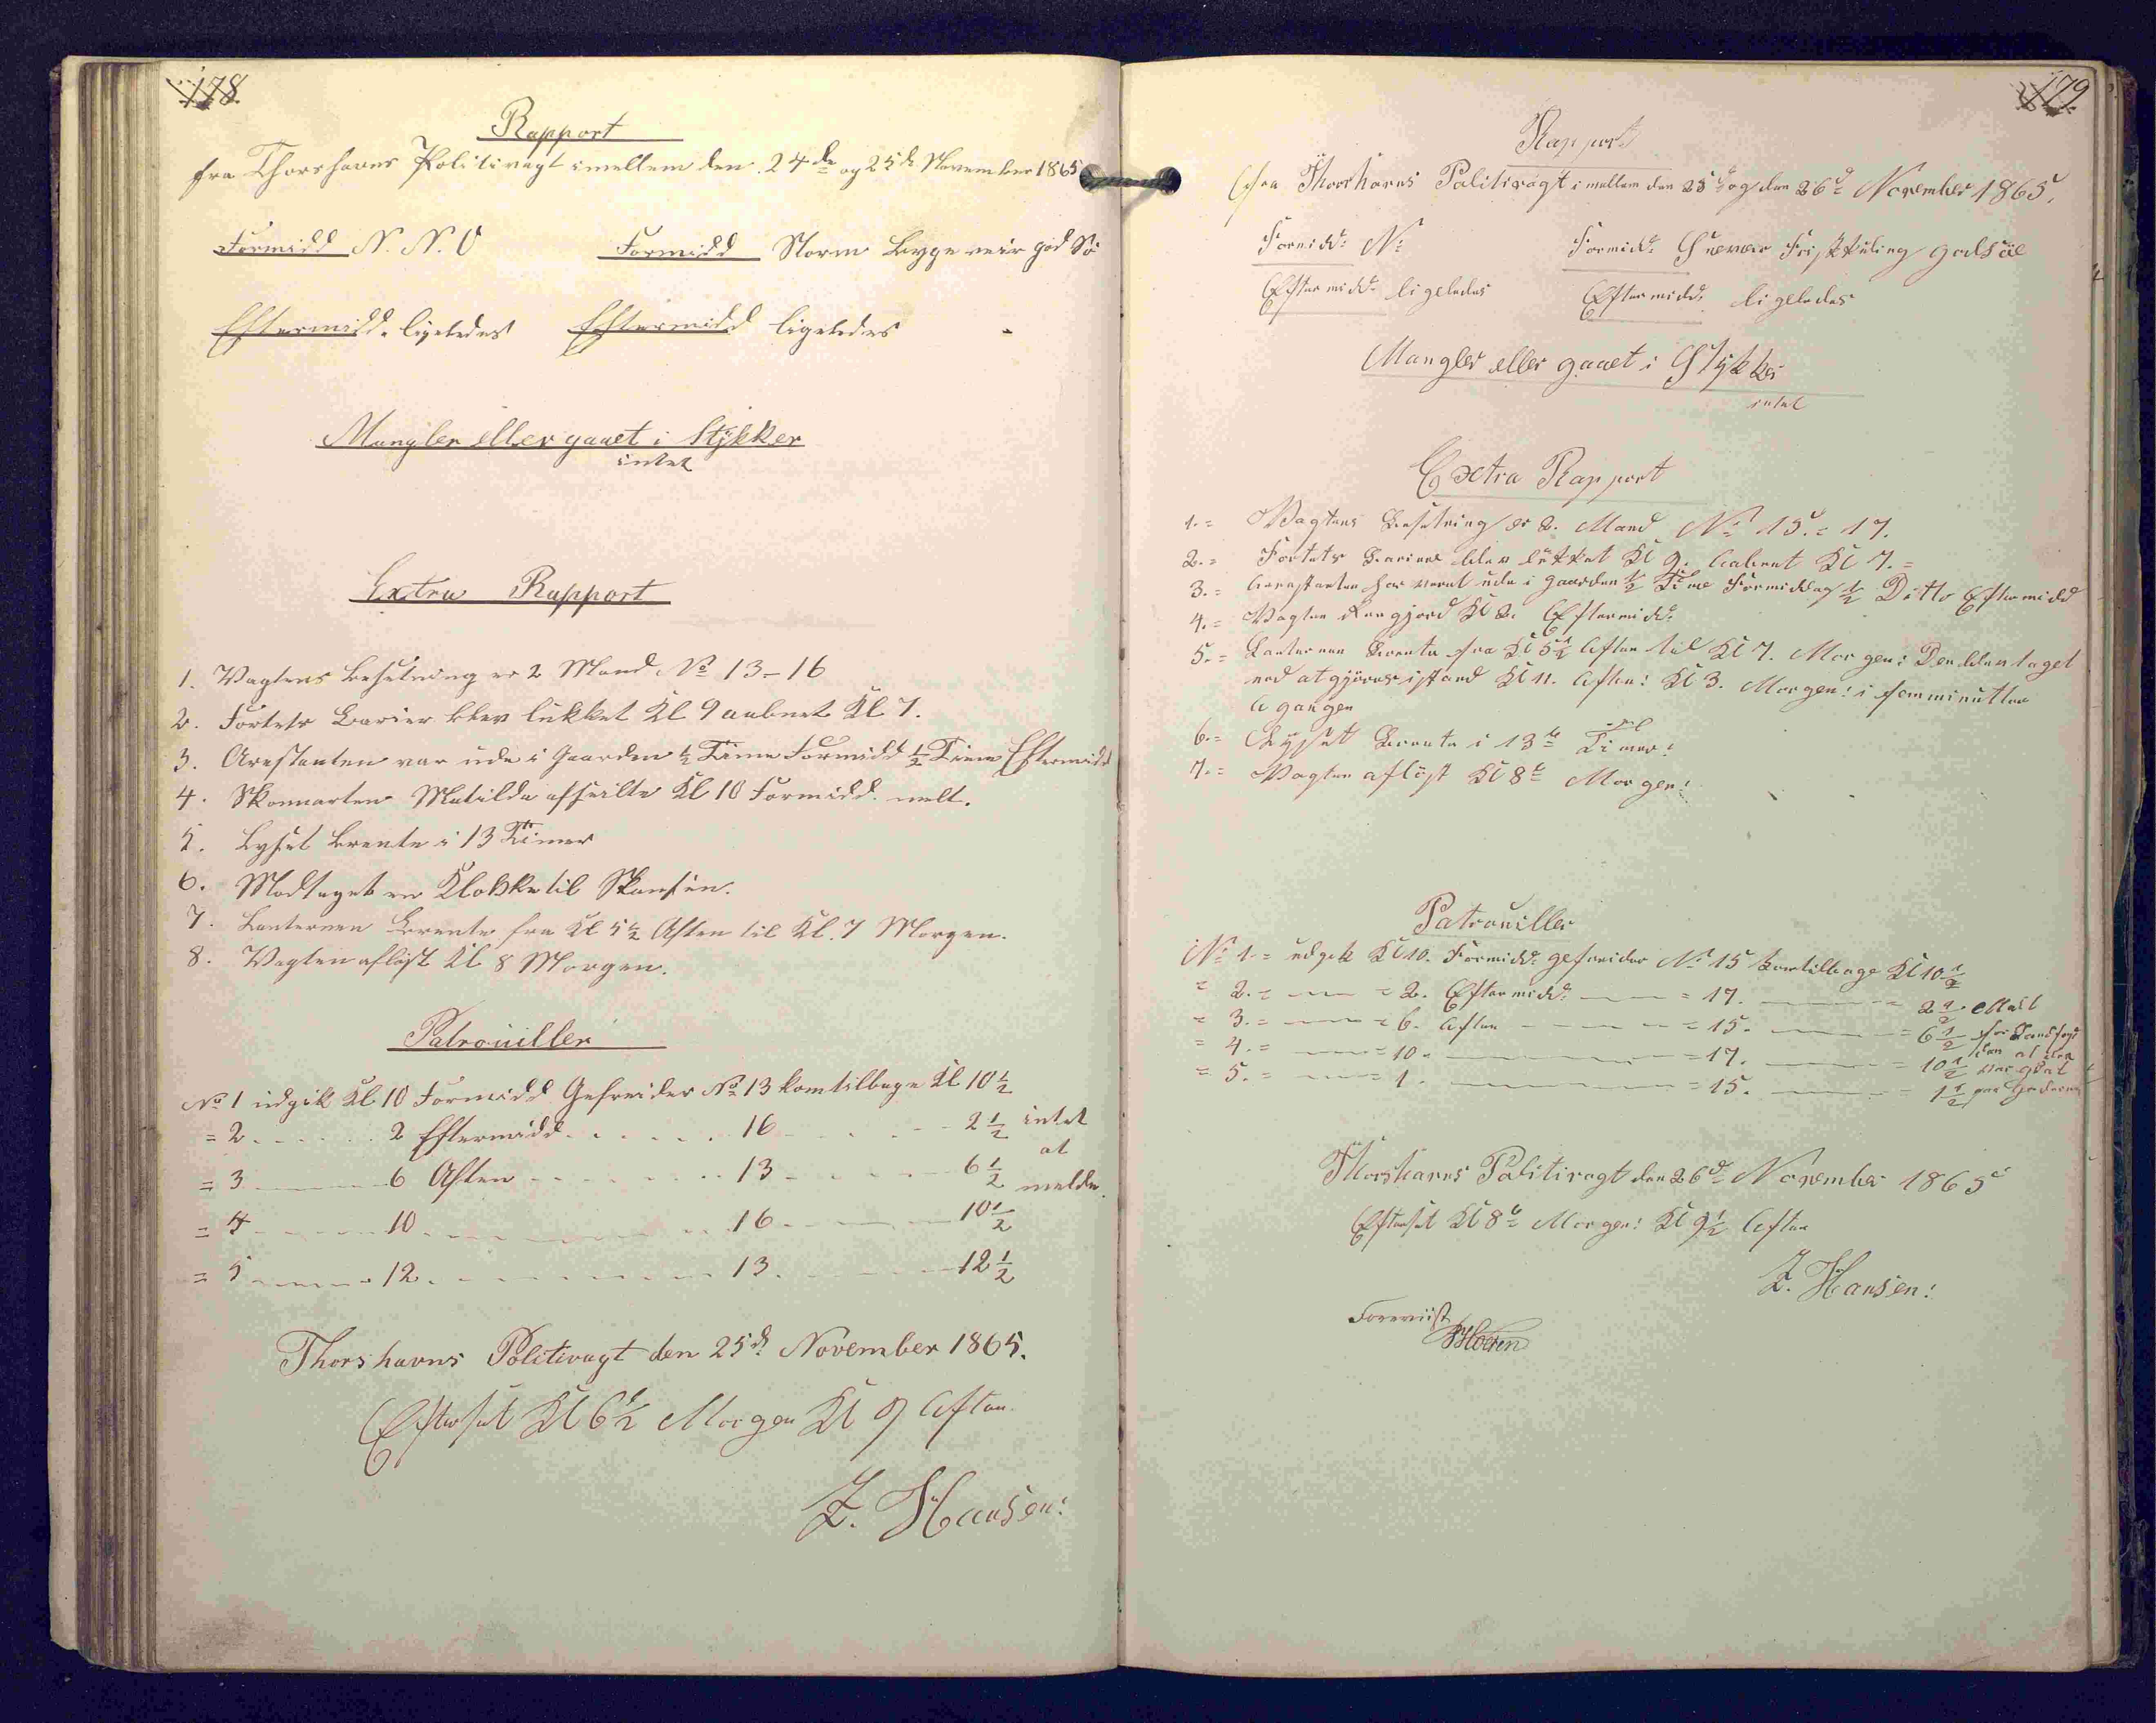 178.
Rapport
fra Thorshavns Politivagt imellem den 24de og 25d November 1865
Formidd N. N. O Formidd Storm Bygeveir god Sö
Eftermidd. ligeledes Eftermidd ligeledes
Mangler eller gaaet i Stÿkker
intet
Extra Rapport
1. Vagtens besetning er 2 Mand No 13-16
2. Fortets Barier blev lukket Kl 9 aabnet Kl 7.
3. Arestanten var ude i Gaarden ½ Time Formidd ½ Time Eftermidd
4. Skonnarten Matilda afseilte Kl 10 Formidd. melt.
5. Lyset brente i 13 Timer
6. Modtaget en Klokke til Skansen.
7. Lanternen brente fra Kl 5½ Aften til Kl. 7 Morgen.
8. Vagten aflöst Kl 8 Morgen.
Patrouiller
No 1 udgik Kl 10 Formidd Gefreider No 13 kom tilbage Kl 10½
= 2 2 Eftermidd 16 2½ intet
= 3 6 Aften 13 6½ at melde.
= 4 10 16 10½
= 5 12 13 12½
Thorshavns Politivagt den 25d November 1865.
Efterset Kl 6½ Morgen Kl 9 Aften.
Z. Hansen:
179.
Rapport
fra Thorshavns Politivagt imellem den 25d og den 26d November 1865.
Formidd: N: Formidd: Snevær Friskkuling god Söe
Eftermidd: ligeledes Eftermidd: ligeledes
Mangler eller gaaet i Stÿkker
intet
Extra Rapport
1.= Vagtens Besetning er 2. Mand No 15.= 17.
2.= Fortets Barier blev lukket Kl 9. aabent Kl 7.=
3.= Arrestanten har veret ude i gaarden ½ Time Formiddag ½ Ditto Eftermidd
4.= Vagten Rengjord Kl 2. Eftermidd:
5.= Lanternen Brente fra Kl 5½ Aften til Kl 7. Morgen: Den blev taget
ned at gjöres istand Kl 11. Aften: Kl 3. Morgen: i fem minutter
A gangen
6.= Lyset Brente i 13 Timer:
7.= Vagten aflöst Kl 8 Morgen:
Patrouiller
No 1.= udgik Kl 10. Formidd: gefreider No 15 kom tilbage Kl 10½
= 2.= = 2. Eftermidd: = 17. = 2½ Mælt
= 3.= = 6. Aften = 15. = 6½ for
= 4.= = 10. = 17. = 10½
= 5.= = 1. = 15. = 1½ paa Gaderne
Thorshavns Politivagt den 26d November 1865
Efterset Kl 8 Morgen: Kl 9½ Aften
Z. Hansen:
Foreviist